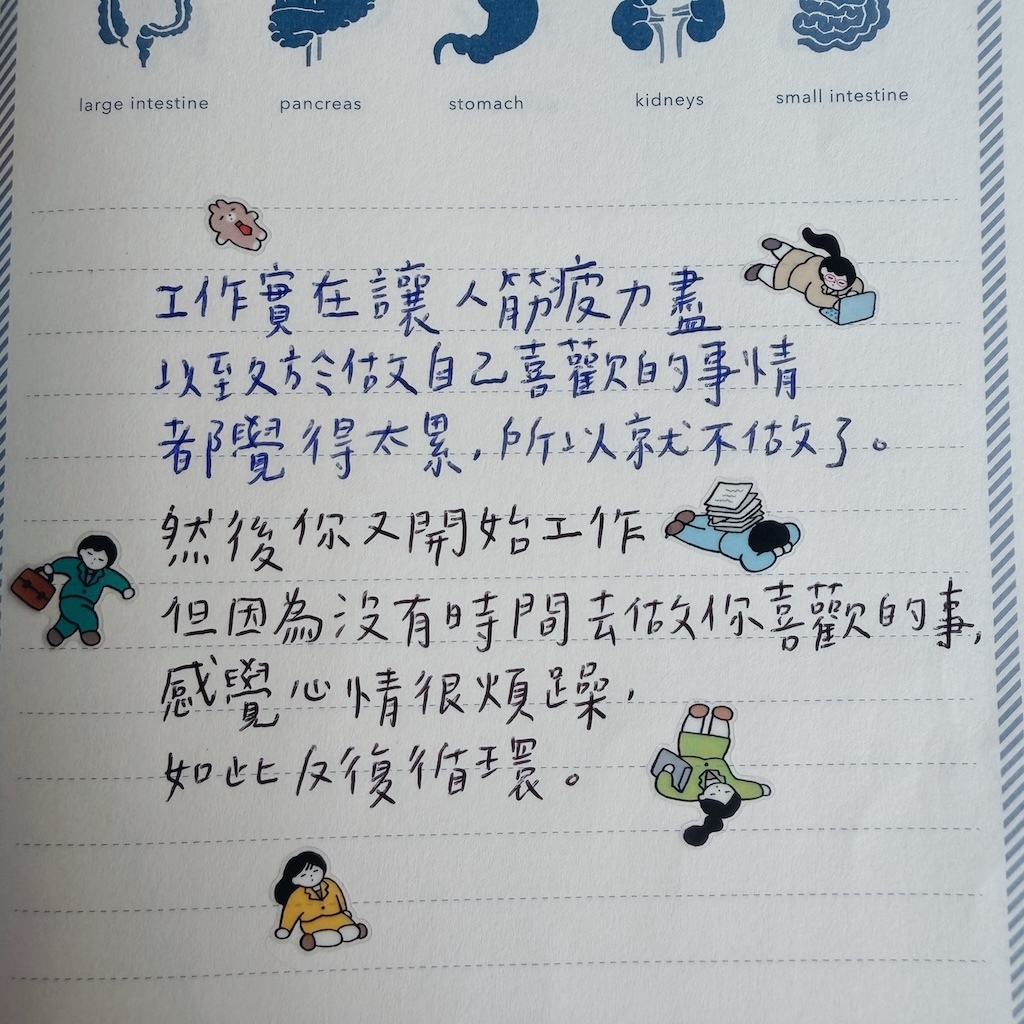 large intestine pancreas stomach kidneys small intestine
工作實在讓人筋疲力盡
以至於於做自己喜歡的事情
都覺得太累，所以就不做了。
然後你又開始工作
但因為沒有時間去做你喜歡的事，
感覺心情很煩躁，
如此反復循環。